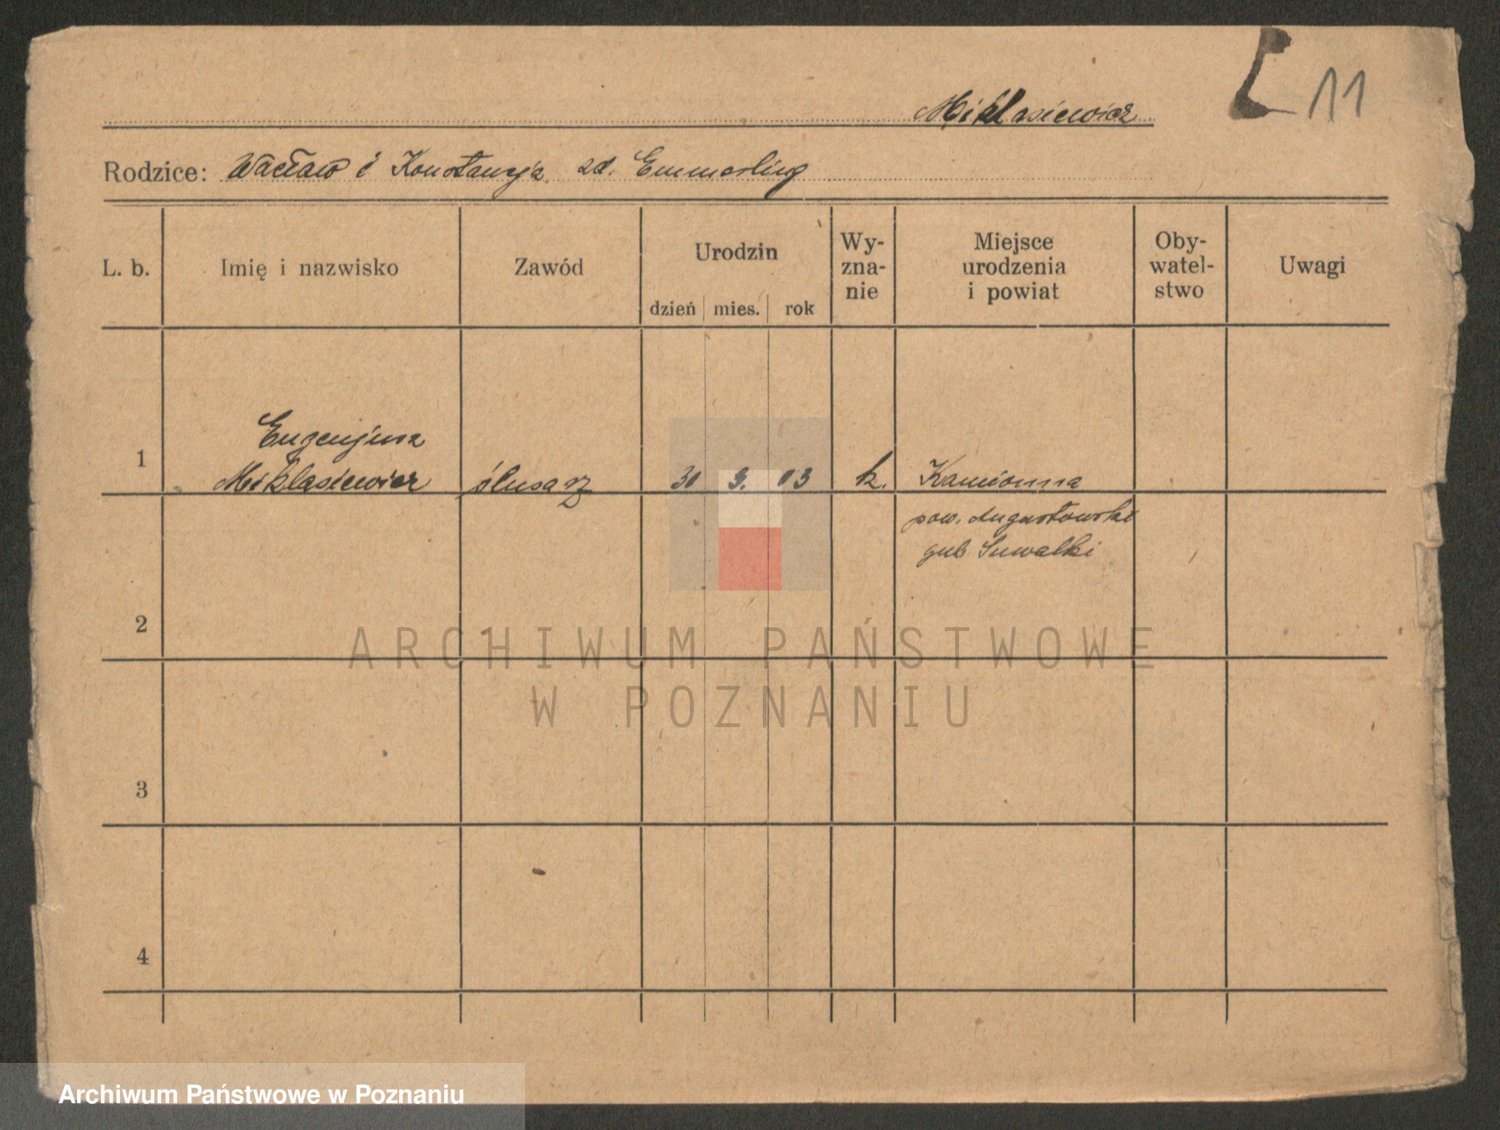 Miklasiewicz
11
Rodzice: Wacław i Konstancja zd. Emmerling
L. b.
Imię i nazwisko
Zawód
Urodzin
dzień mies. rok
Wy-
zna-
nie
Miejsce
urodzenia
i powiat
Oby-
watel-
stwo
Uwagi
1
Eugenjusz
Miklasiewicz
ślusarz
30 9. 03
k.
Kamionna
pow. Augustowski
gub Suwalki
2
3
4
ARCHIWUM PAŃSTWOWE
W POZNANIU
Archiwum Państwowe w Poznaniu